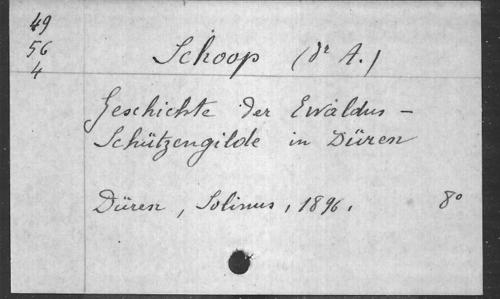 49
56
4
Schoop (Dr A.)
Geschichte der Ewaldus-
Schützengilde in Düren
Düren, Solinus, 1896. 8°